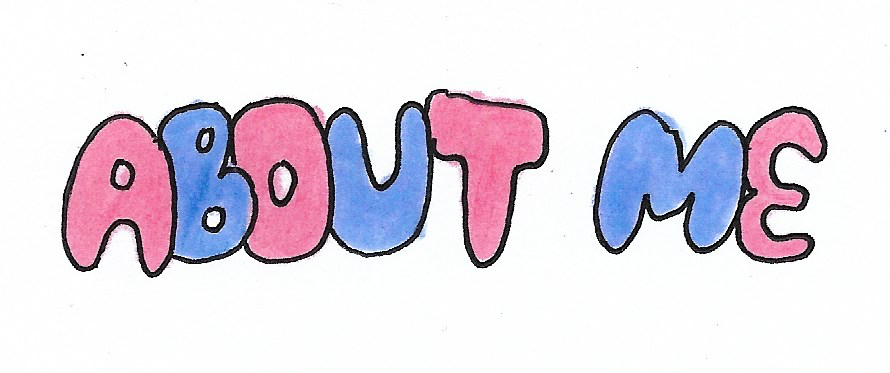 ABOUT ME